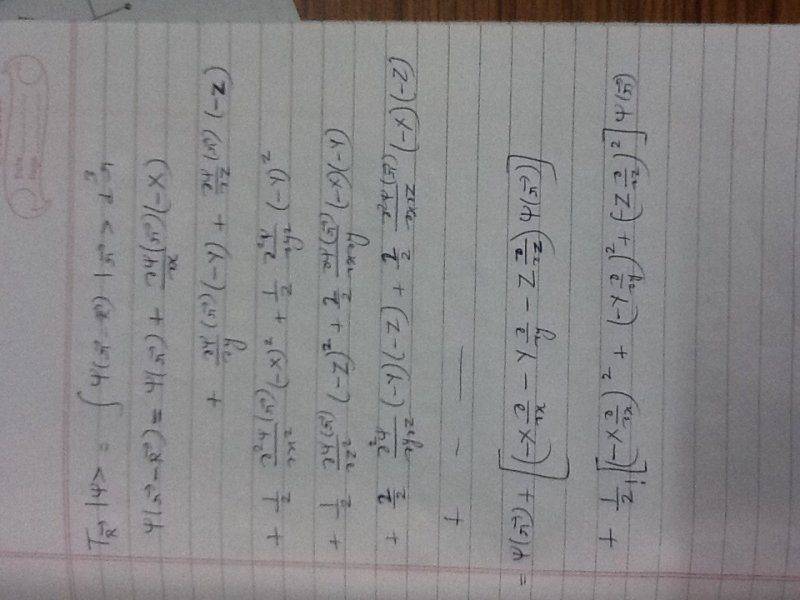 T_R⃗ |Ψ> = ∫ Ψ(r⃗ - R⃗) |r⃗> d³r
Ψ(r⃗ - R⃗) = Ψ(r⃗) + ∂Ψ(r⃗)/∂x (-X)
+ ∂Ψ(r⃗)/∂y (-Y) + ∂Ψ(r⃗)/∂z (-Z)
+ 1/2 ∂²Ψ(r⃗)/∂x² (-X)² + 1/2 ∂²Ψ/∂y² (-Y)²
+ 1/2 ∂Ψ(r⃗)/∂z² (-Z)² + 2/2 ∂Ψ(r⃗)/∂x∂y (-X)(-Y)
+ 2/2 ∂²Ψ/∂y∂z (-Y)(-Z) + 2/2 ∂²Ψ(r⃗)/∂x∂z (-X)(-Z)
+ - ——
= Ψ(r⃗) + [(-X ∂/∂x - Y ∂/∂y - Z ∂/∂z) Ψ(r⃗)]
+ 1/2! [(-X ∂/∂x)² + (-Y ∂/∂y)² + (-Z ∂/∂z)²] Ψ(r⃗)